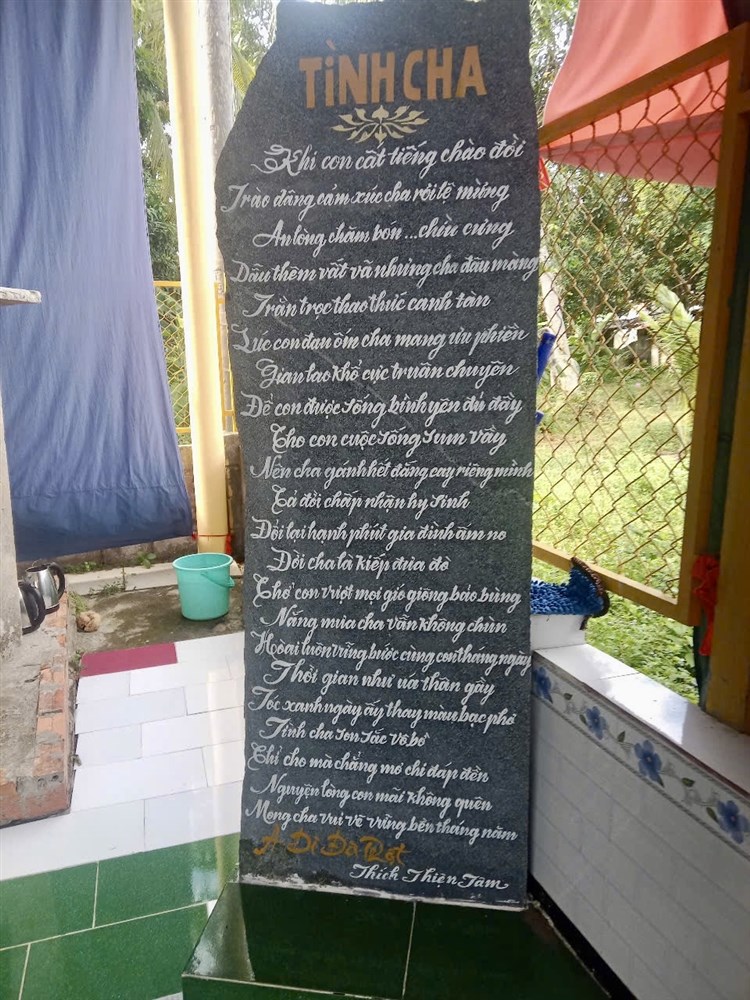 TÌNH CHA
Khi con cất tiếng chào đời
Trào dâng cảm xúc cha rơi lệ mừng
An lòng chăm bón...chiều cưng
Dẫu thêm vất vã nhưng cha đâu màng
Trằn trọc thao thức canh tàn
Lúc con đau ốm cha mang ưu phiền
Gian lao khổ cực truân chuyên
Để con được sống bình yên đủ đầy
Cho con cuộc sống sum vầy
Nên cha gánh hết đắng cay riêng mình
Cả đời chấp nhận hy sinh
Đổi lại hạnh phút gia đình ấm no
Đời cha là kiếp đưa đò
Chở con vượt mọi gió giông bảo bùng
Nắng mưa cha vẫn không chùn
Hoài luôn vững bước cùng con tháng ngày
Thời gian như úa thân gầy
Tóc xanh ngày ấy thay màu bạc phơ
Tình cha son sắc vô bờ
Chỉ cho mà chẳng mơ chi đáp đền
Nguyện lòng con mãi không quên
Mong cha vui vẽ vững bền tháng năm
A Di Đà Phật
Thích Thiện Tâm